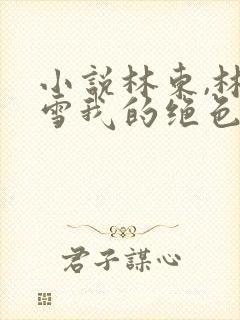 小説林东,林
雪我的绝色
君子謀心